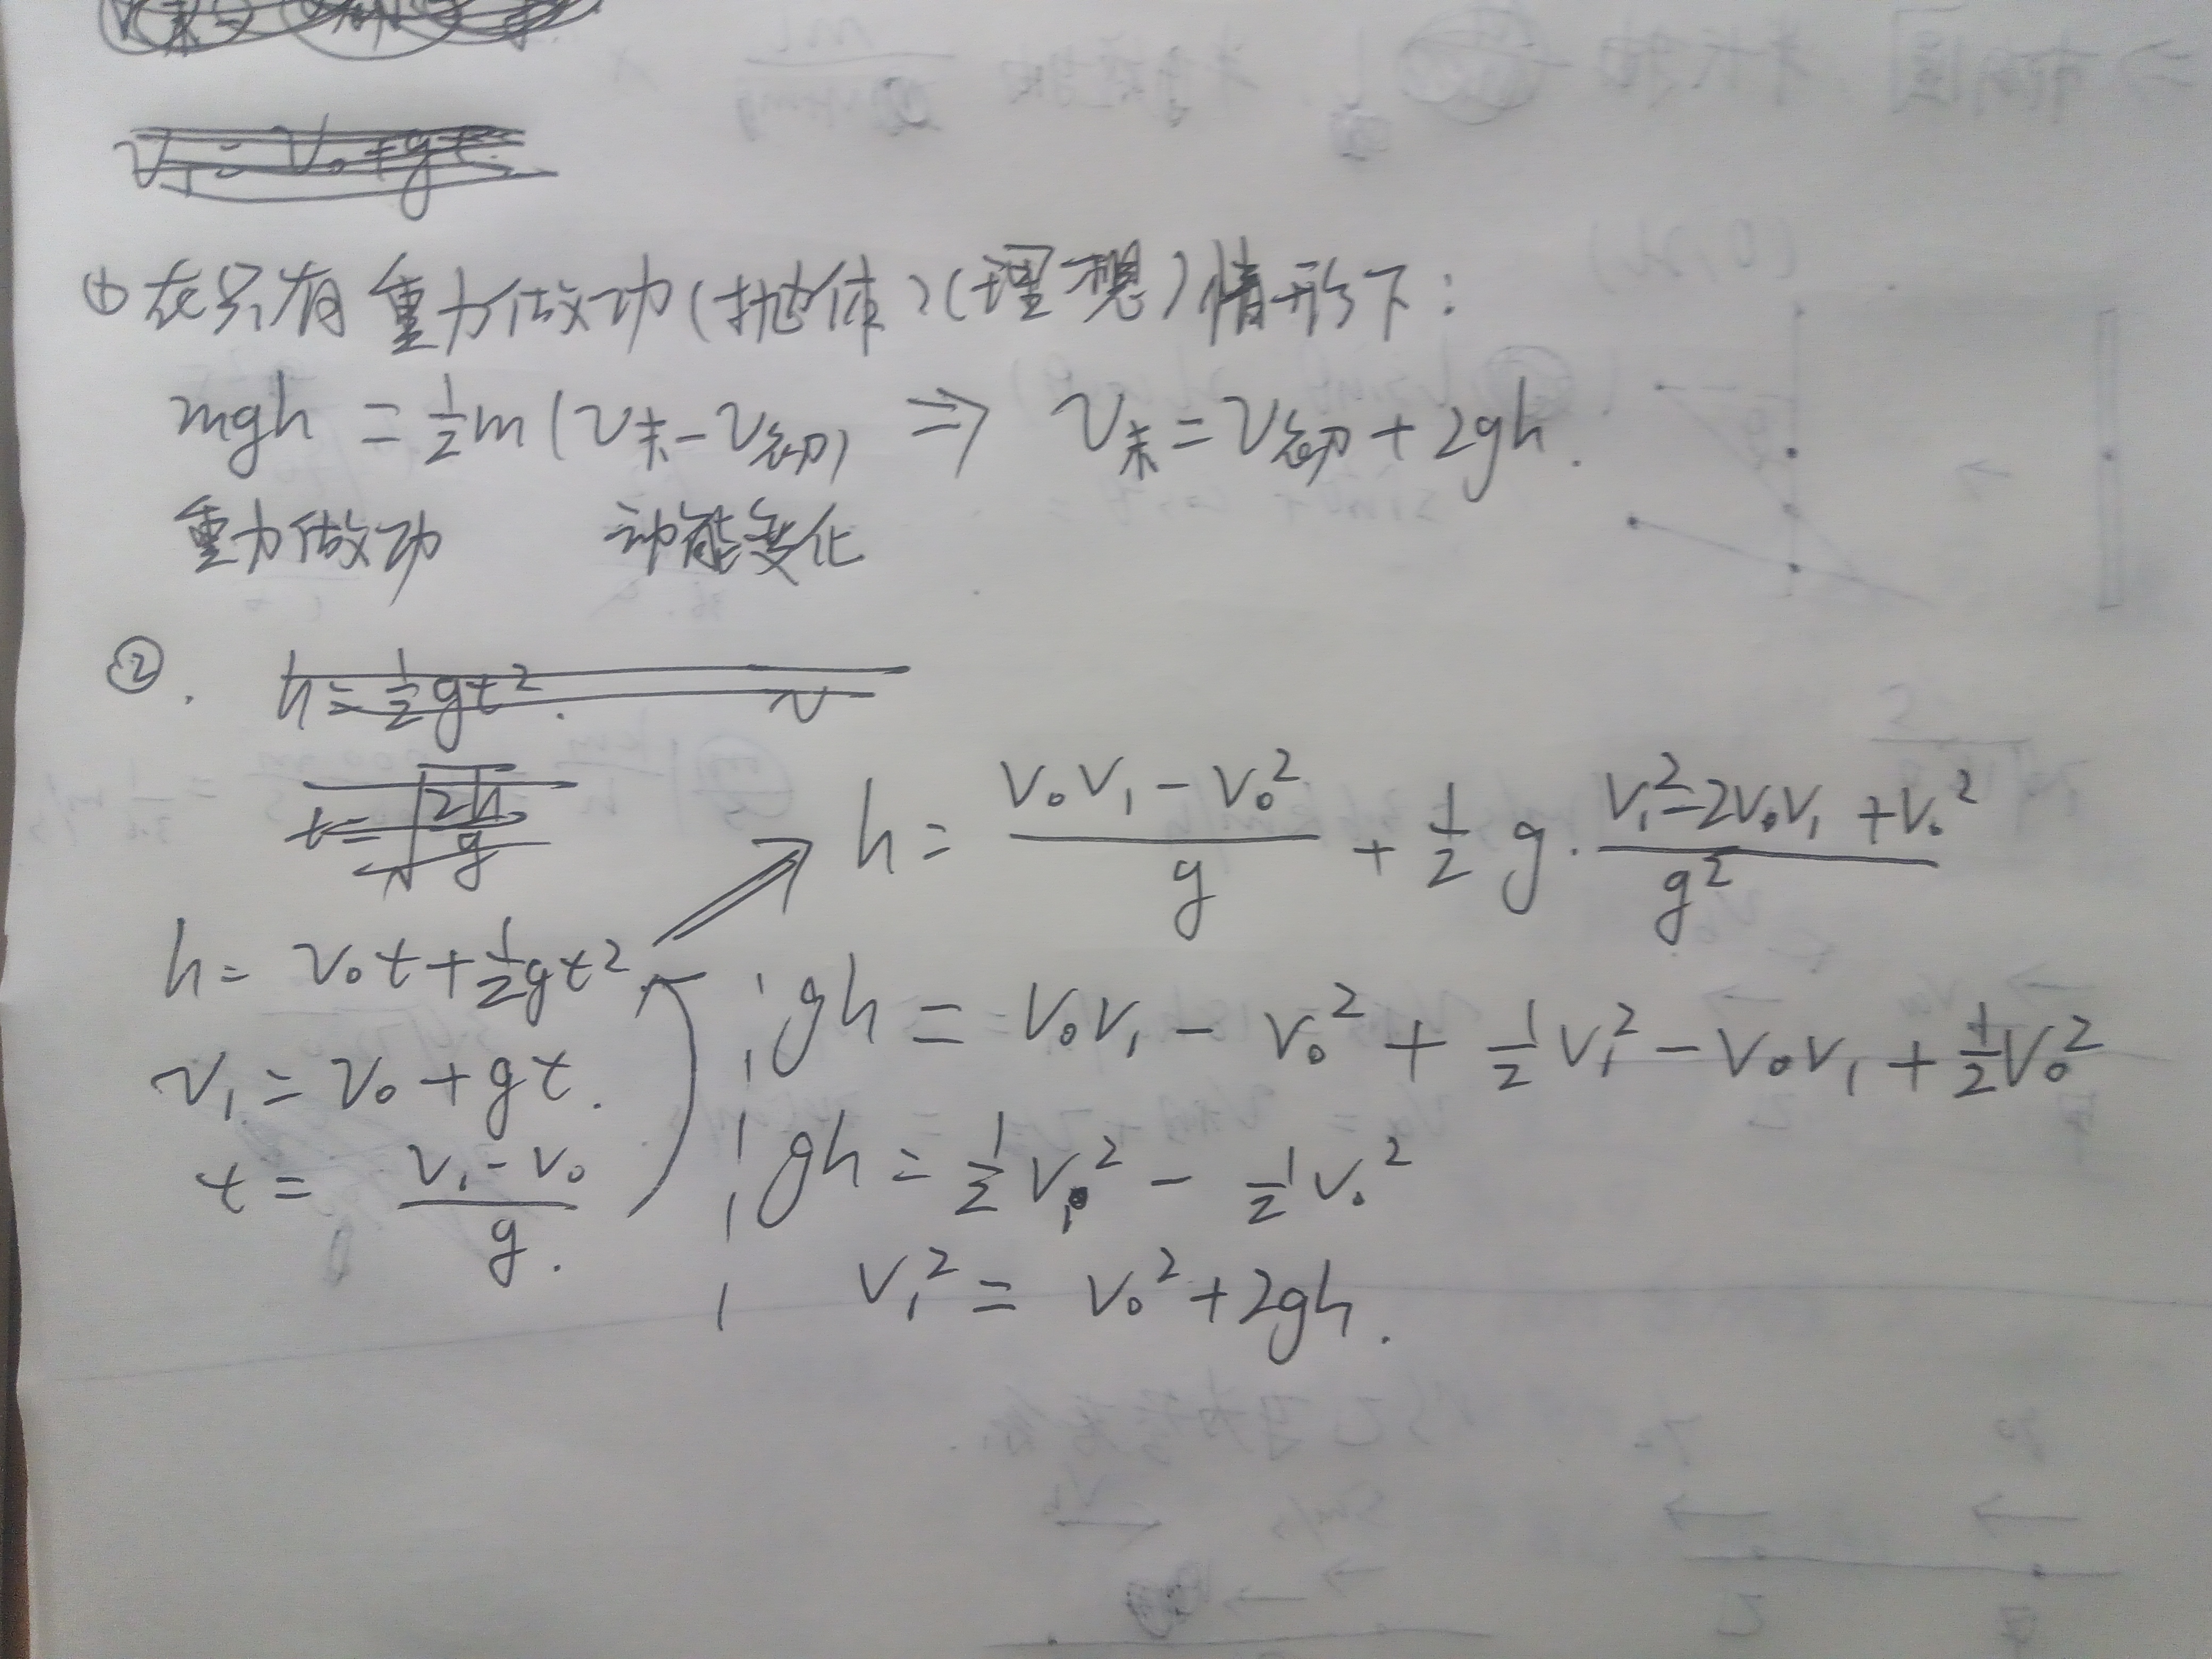 V₁ = V₀ + gt.
① 在只有重力做功(抛体)(理想)情形下:
mgh = ½m(v末 - v初) ⇒ v末 = v初 + 2gh.
重力做功 动能变化
②. h = ½gt². v
t = √(2h/g)
h = v₀t + ½gt²
v₁ = v₀ + gt.
t = (v₁ - v₀)/g.
h = (v₀v₁ - v₀²)/g + ½g·(v₁² - 2v₀v₁ + v₀²)/g²
gh = v₀v₁ - v₀² + ½v₁² - v₀v₁ + ½v₀²
gh = ½v₁² - ½v₀²
v₁² = v₀² + 2gh.